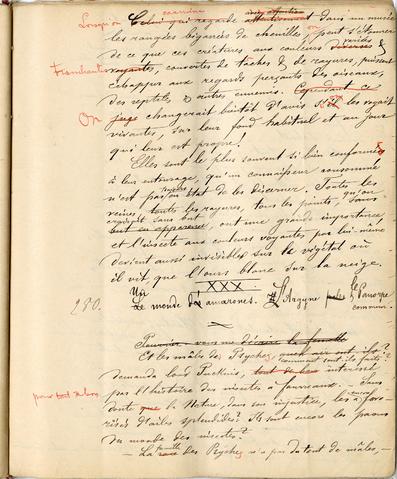 Lorsqu'on examine avec attention
Celui qui regarde attentivement dans un musée
les rangées bigarrées de chenilles, on peut s'étonner
de ce que ces créatures aux couleurs diverses & variées
tranchantes
voyantes, couvertes de taches & de rayures, puissent
échapper aux regards perçants des oiseaux,
des reptiles & autres ennemis. Cependant ce
On juge changerait bientôt d'avis s'il les voyait
vivantes, sur leur fond habituel et au jour
qui leur est propre!
Elles sont le plus souvent si bien conformées
à leur entourage, qu'un connaisseur consommé
n'est pas toujours en état de les discerner. Toutes les
veines, toutes les rayures, tous les points, qu'on
croirait sans but
sans but en apparence, ont une grande importance
et l'insecte aux couleurs voyantes par lui-même
devient aussi invisible sur le végétal où
il vit, que l'ours blanc sur la neige.
XXX
230.
Le monde d'amazones. L'Argyne le Panorpe
commun.
Et les mâles des Psychés, quel air ont-ils?
comment sont-ils faits?
demanda lord Franklin, tout de bon intéressé
pour tout de bon
par l'histoire des insectes à fourreaux. – Sans
doute que la Nature, dans son injustice, les a favo-
risés d'ailes splendides? Ils sont encore les paons
du monde des insectes?
– La famille race des Psychés n'a pas du tout de mâles, –